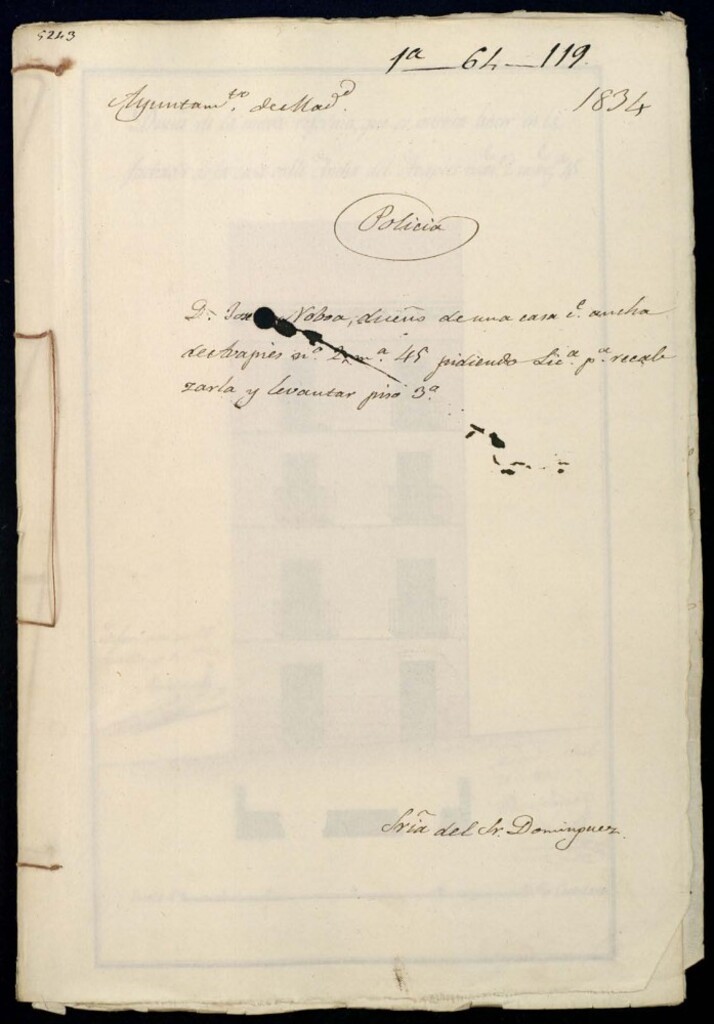 5243
1a — 64 — 119
Ayuntam.to de Mad.d
1834
Policia
D. Noboa, dueño de una casa c.e ancha
de Avapies n.o 2 m.a 45 pidiendo Lic.a p.a recal
zarla y levantar piso 3.o
Sría del Sr. Dominguez.